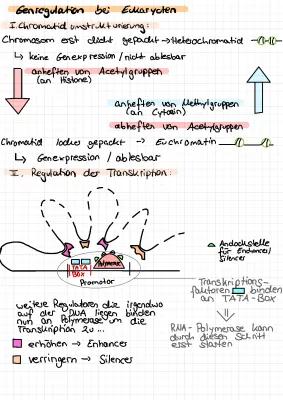 Genregulation bei Eukaryoten
I. Chromatid umstrukturierung:
Chromosom erst dicht gepackt → Heterochromatid
↳ keine Genexpression / nicht ablesbar
anheften von Acetylgruppen
(an Histone)
anheften von Methylgruppen
(an Cytosin)
abheften von Acetylgruppen
Chromatid locker gepackt → Euchromatin
↳ Genexpression / ablesbar
II. Regulation der Transkription:
Polymerase
TATA
Box
Promotor
Andockstelle
für Enhancer/
Silencer
Transkriptions-
faktoren binden
an TATA-Box
RNA-Polymerase kann
durch diesen Schritt
erst starten
weitere Regulatoren die irgendwo
auf der DNA liegen binden
nun an Polymerase um die
Transkription zu...
erhöhen → Enhancer
verringern → Silencer